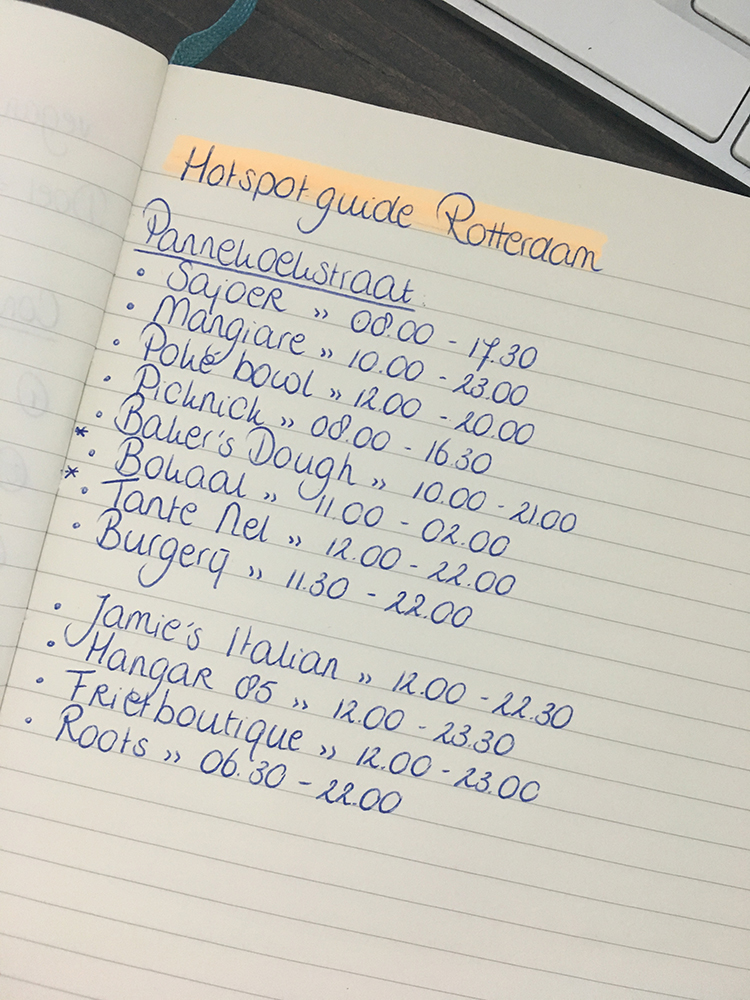 Hotspot guide Rotterdam
Pannekoekstraat:
• Sajoer ,, 08.00 - 17.30
• Mangiare ,, 10.00 - 23.00
• Poké bowl ,, 12.00 - 20.00
• Picknick ,, 08.00 - 16.30
• Baker's Dough ,, 10.00 - 21.00
* • Bokaal ,, 11.00 - 02.00
* • Tante Nel ,, 12.00 - 22.00
• Burgerij ,, 11.30 - 22.00
• Jamie's Italian ,, 12.00 - 22.30
• Hangar 85 ,, 12.00 - 23.30
• Frietboutique ,, 12.00 - 23.00
• Roots ,, 06.30 - 22.00